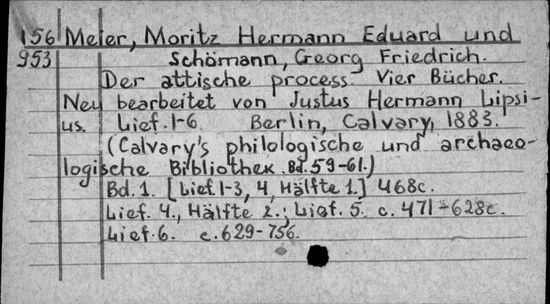 156 Meier, Moritz Hermann Eduard und
953 Schömann, Georg Friedrich.
Der attische process. Vier Bücher.
Neu bearbeitet von Justus Hermann Lipsi-
us. Lief. 1-6 Berlin, Calvary, 1883.
(Calvary's philologische und archaeo-
logische Bibliothek. Bd. 59-61.)
Bd. 1. [Lief. 1-3, 4, Hälfte 1.] 468c.
Lief. 4., Hälfte 2.; Lief. 5. c. 471-628c.
Lief. 6. c. 629-756.